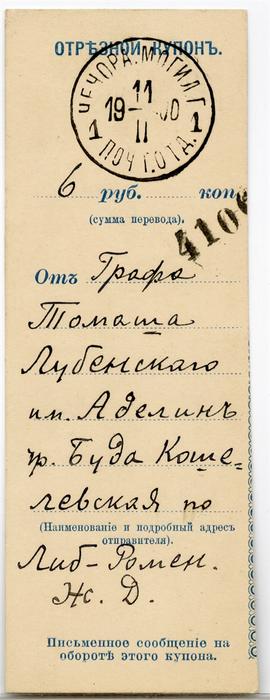 ОТРѢЗНОЙ КУПОНЪ.
ЧЕЧОРА. МОГИЛ. Г.
11
19 00
II
1 1
ПОЧ. ОТД.
6 руб. коп.
(сумма перевода).
4106
Отъ Графа
Томаша
Лубенскаго
им. Аделинъ
чр. Буда Коше-
левская по
(Наименованіе и подробный адресъ
отправителя).
Либ-Ромен.
Ж. Д.
Письменное сообщеніе на
оборотѣ этого купона.